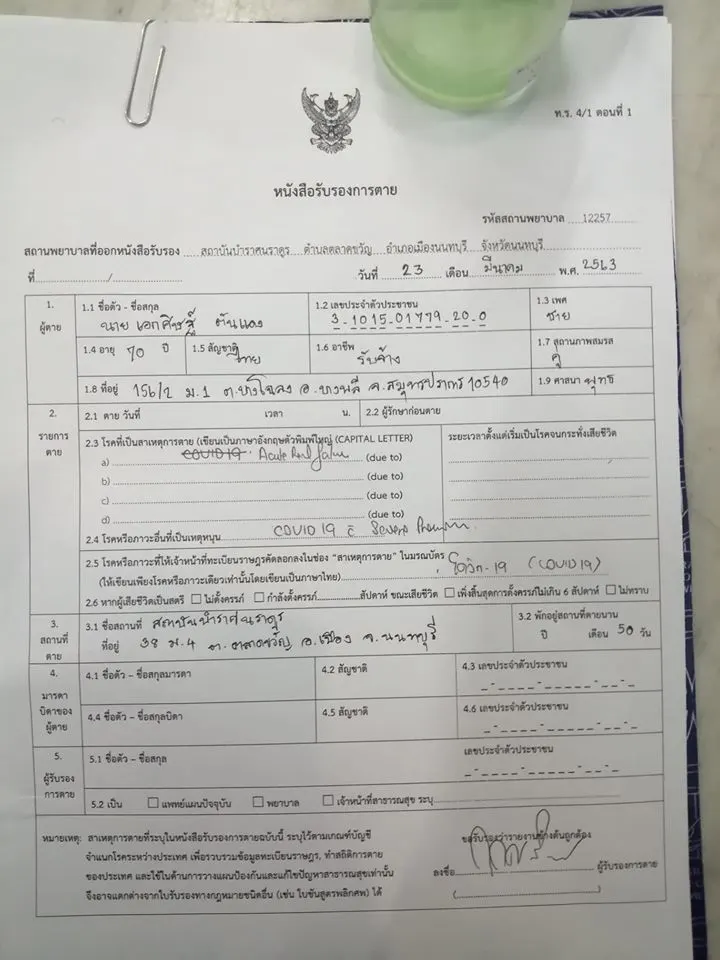 ท.ร. 4/1 ตอนที่ 1
หนังสือรับรองการตาย
รหัสสถานพยาบาล 12257
สถานพยาบาลที่ออกหนังสือรับรอง สถาบันบำราศนราดูร ตำบลตลาดขวัญ อำเภอเมืองนนทบุรี จังหวัดนนทบุรี
ที่ / วันที่ 23 เดือน มีนาคม พ.ศ. 2563
1. ผู้ตาย
1.1 ชื่อตัว - ชื่อสกุล นาย
1.2 เลขประจำตัวประชาชน 3-1015-01779-20-0
1.3 เพศ ชาย
1.4 อายุ 70 ปี 1.5 สัญชาติ ไทย 1.6 อาชีพ รับจ้าง 1.7 สถานภาพสมรส คู่
1.8 ที่อยู่ 156/2 ม.1 ต.บางโฉลง อ.บางพลี จ.สมุทรปราการ 10540 1.9 ศาสนา พุทธ
2. รายการตาย
2.1 ตาย วันที่ เวลา น. 2.2 ผู้รักษาก่อนตาย
2.3 โรคที่เป็นสาเหตุการตาย (เขียนเป็นภาษาอังกฤษตัวพิมพ์ใหญ่ (CAPITAL LETTER) ระยะเวลาตั้งแต่เริ่มเป็นโรคจนกระทั่งเสียชีวิต
a) COVID 19 Acute (due to)
b) (due to)
c) (due to)
d) (due to)
2.4 โรคหรือภาวะอื่นที่เป็นเหตุหนุน COVID 19 c Severe
2.5 โรคหรือภาวะที่ให้เจ้าหน้าที่ทะเบียนราษฎรคัดลอกลงในช่อง "สาเหตุการตาย" ในมรณบัตร
(ให้เขียนเพียงโรคหรือภาวะเดียวเท่านั้นโดยเขียนเป็นภาษาไทย) โควิด-19 (COVID 19)
2.6 หากผู้เสียชีวิตเป็นสตรี ไม่ตั้งครรภ์ กำลังตั้งครรภ์ สัปดาห์ ขณะเสียชีวิต เพิ่งสิ้นสุดการตั้งครรภ์ไม่เกิน 6 สัปดาห์ ไม่ทราบ
3. สถานที่ตาย
3.1 ชื่อสถานที่ สถาบันบำราศนราดูร 3.2 พักอยู่สถานที่ตายนาน
ที่อยู่ 38 ม.4 ต.ตลาดขวัญ อ.เมือง จ.นนทบุรี ปี เดือน 50 วัน
4. มารดาบิดาของผู้ตาย
4.1 ชื่อตัว - ชื่อสกุลมารดา 4.2 สัญชาติ 4.3 เลขประจำตัวประชาชน
4.4 ชื่อตัว - ชื่อสกุลบิดา 4.5 สัญชาติ 4.6 เลขประจำตัวประชาชน
5. ผู้รับรองการตาย
5.1 ชื่อตัว - ชื่อสกุล เลขประจำตัวประชาชน
5.2 เป็น แพทย์แผนปัจจุบัน พยาบาล เจ้าหน้าที่สาธารณสุข ระบุ
หมายเหตุ: สาเหตุการตายที่ระบุในหนังสือรับรองการตายฉบับนี้ ระบุไว้ตามเกณฑ์บัญชี
จำแนกโรคระหว่างประเทศ เพื่อรวบรวมข้อมูลทะเบียนราษฎร, ทำสถิติการตาย
ของประเทศ และใช้ในด้านการวางแผนป้องกันและแก้ไขปัญหาสาธารณสุขเท่านั้น
จึงอาจแตกต่างจากใบรับรองทางกฎหมายชนิดอื่น (เช่น ใบชันสูตรพลิกศพ) ได้
ขอรับรองว่ารายงานข้างต้นถูกต้อง
ลงชื่อ ผู้รับรองการตาย